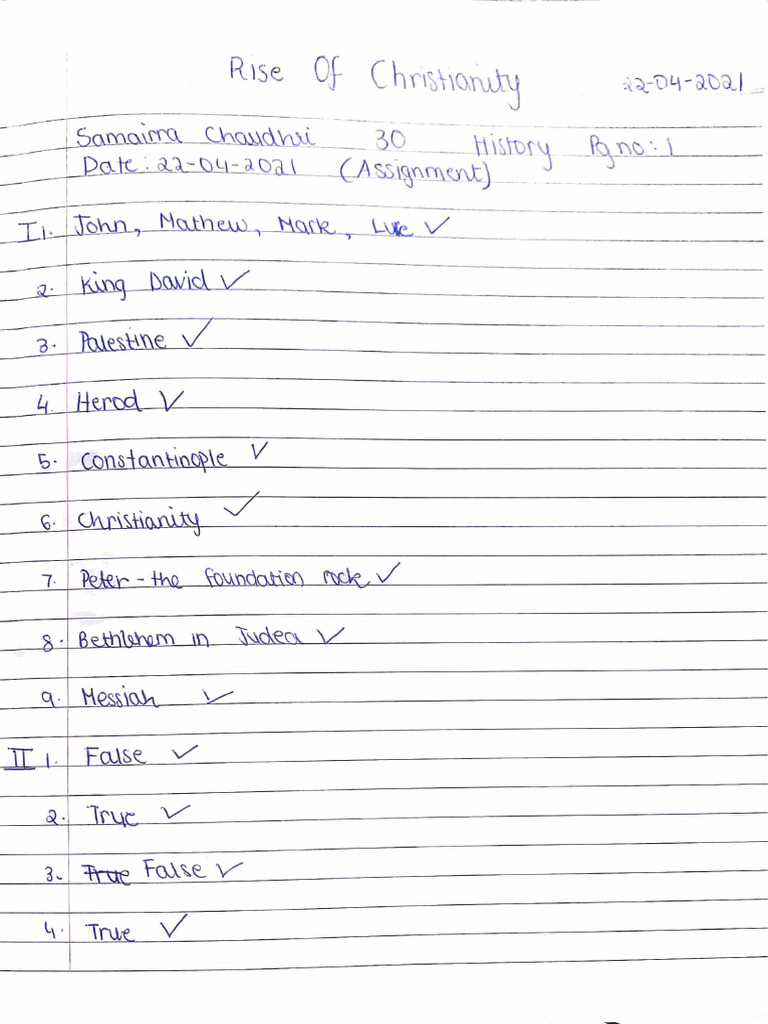 Rise Of Christianity 22-04-2021
Samairra Chaudhri 30 History Pg no: 1
Date: 22-04-2021 (Assignment)
I 1. John, Mathew, Mark, Luke ✓
2. King David ✓
3. Palestine ✓
4. Herod ✓
5. Constantinople ✓
6. Christianity ✓
7. Peter - the foundation rock ✓
8. Bethlehem in Judea ✓
9. Messiah ✓
II 1. False ✓
2. True ✓
3. True False ✓
4. True ✓